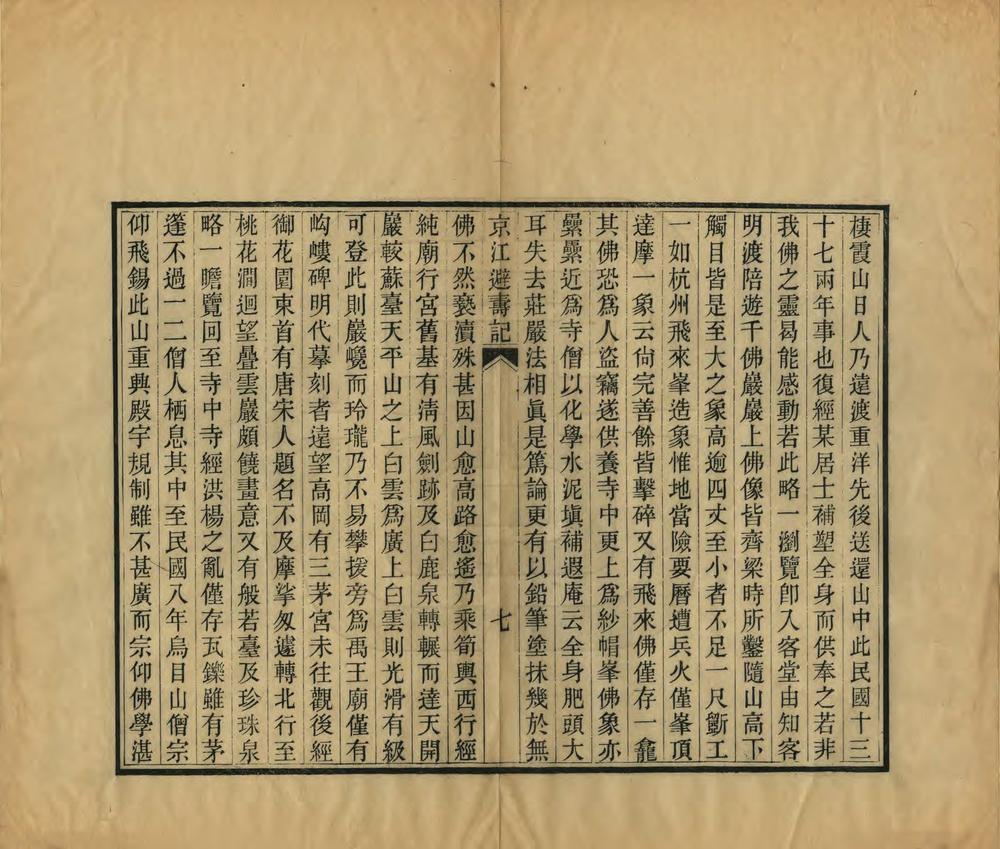 棲霞山日人乃遠渡重洋先後送還山中此民國十三
十七兩年事也復經某居士補塑全身而供奉之若非
我佛之靈曷能感動若此略一瀏覽卽入客堂由知客
明渡陪遊千佛巖巖上佛像皆齊梁時所鑿隨山高下
觸目皆是至大之象高逾四丈至小者不足一尺斵工
一如杭州飛來峯造象惟地當險要曆遭兵火僅峯頂
達摩一象云尙完善餘皆擊碎又有飛來佛僅存一龕
其佛恐爲人盜竊遂供養寺中更上爲紗帽峯佛象亦
纍纍近爲寺僧以化學水泥塡補遐庵云全身肥頭大
耳失去莊嚴法相眞是篤論更有以鉛筆塗抹幾於無
京江避壽記 七
佛不然褻瀆殊甚因山愈高路愈遙乃乘筍輿西行經
純廟行宮舊基有淸風劍跡及白鹿泉轉輾而達天開
巖較蘇臺天平山之上白雲爲廣上白雲則光滑有級
可登此則巖巉而玲瓏乃不易攀援旁爲禹王廟僅有
岣嶁碑明代摹刻者遠望高岡有三茅宮未往觀後經
御花園東首有唐宋人題名不及摩挲匆遽轉北行至
桃花澗迴望疊雲巖頗饒畫意又有般若臺及珍珠泉
略一瞻覽回至寺中寺經洪楊之亂僅存瓦鑠雖有茅
篷不過一二僧人栖息其中至民國八年烏目山僧宗
仰飛錫此山重興殿宇規制雖不甚廣而宗仰佛學湛